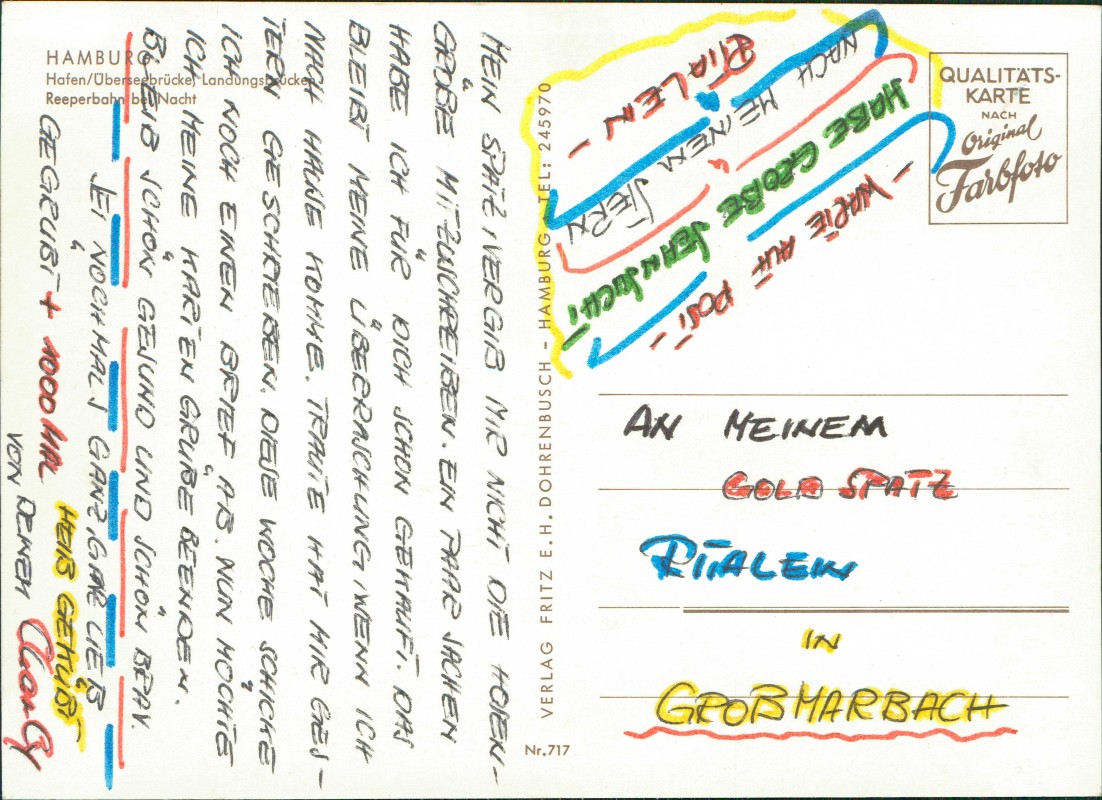 HAMBURG
Hafen/Überseebrücke, Landungsbrücken
Reeperbahn bei Nacht
MEIN SPATZ, VERGIß MIR NICHT DIE HOSEN-
GRÖßE MITZUSCHREIBEN. EIN PAAR SACHEN
HABE ICH FÜR DICH SCHON GEKAUFT. DAS
BLEIBT MEINE ÜBERRASCHUNG, WENN ICH
NACH HAUSE KOMME. TRAUTE HAT MIR GES-
TERN GESCHRIEBEN. DIESE WOCHE SCHICKE
ICH NOCH EINEN BRIEF AB. NUN MÖCHTE
ICH MEINE KARTEN GRÜßE BEENDEN.
BLEIB SCHÖN GESUND UND SCHÖN BRAV.
SEI NOCHMALS GANZ, GANZ LIEB
GEGRÜßT + 1000 MAL HEIß GEKÜßT
VON DEINEM
VERLAG FRITZ E. H. DOHRENBUSCH - HAMBURG TEL: 245970
Nr. 717
- WARTE AUF POST -
HABE GROßE SEHNSUCHT
NACH MEINEM STERN
RITALEIN -
QUALITÄTS-
KARTE
NACH
Original
Farbfoto
AN MEINEM
GOLD SPATZ
RITALEIN
IN
GROßMARBACH